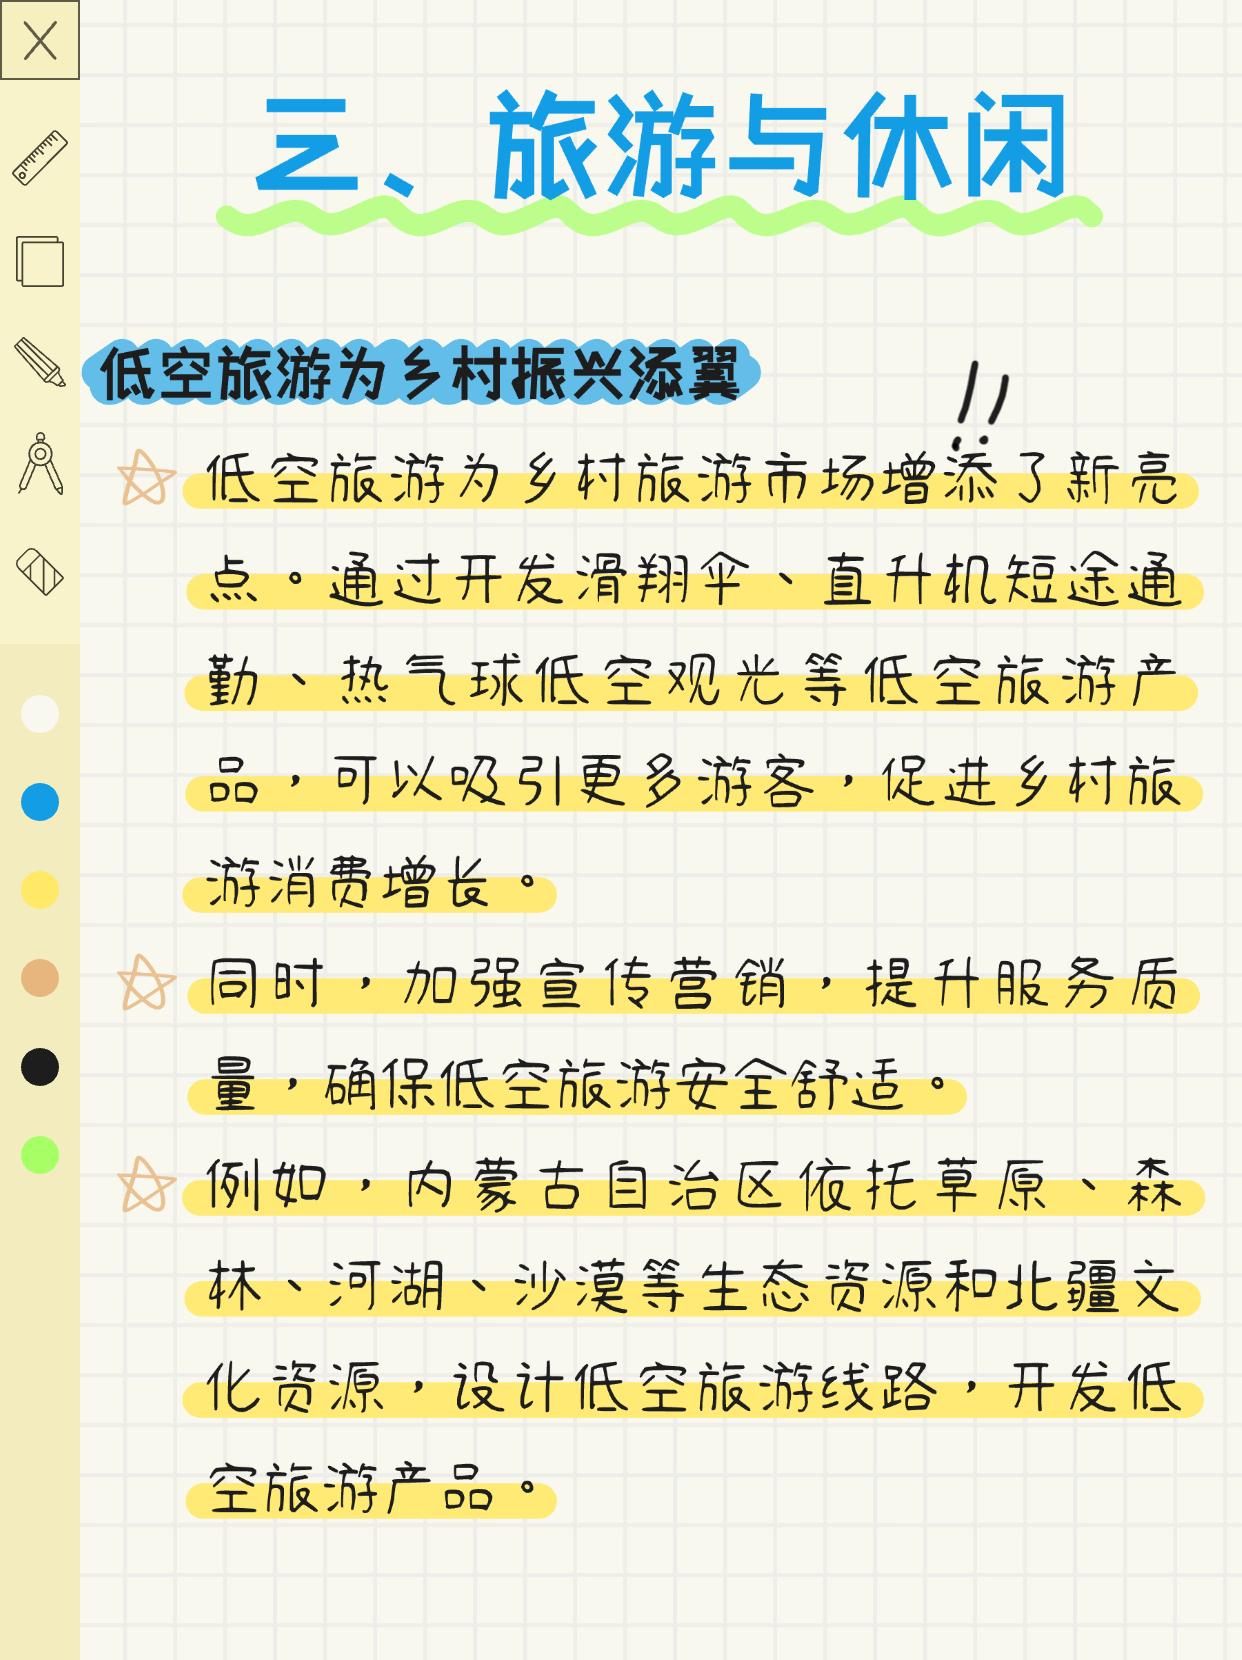 三、旅游与休闲
低空旅游为乡村振兴添翼
!!
低空旅游为乡村旅游市场增添了新亮
点。通过开发滑翔伞、直升机短途通
勤、热气球低空观光等低空旅游产
品，可以吸引更多游客，促进乡村旅
游消费增长。
同时，加强宣传营销，提升服务质
量，确保低空旅游安全舒适。
例如，内蒙古自治区依托草原、森
林、河湖、沙漠等生态资源和北疆文
化资源，设计低空旅游线路，开发低
空旅游产品。